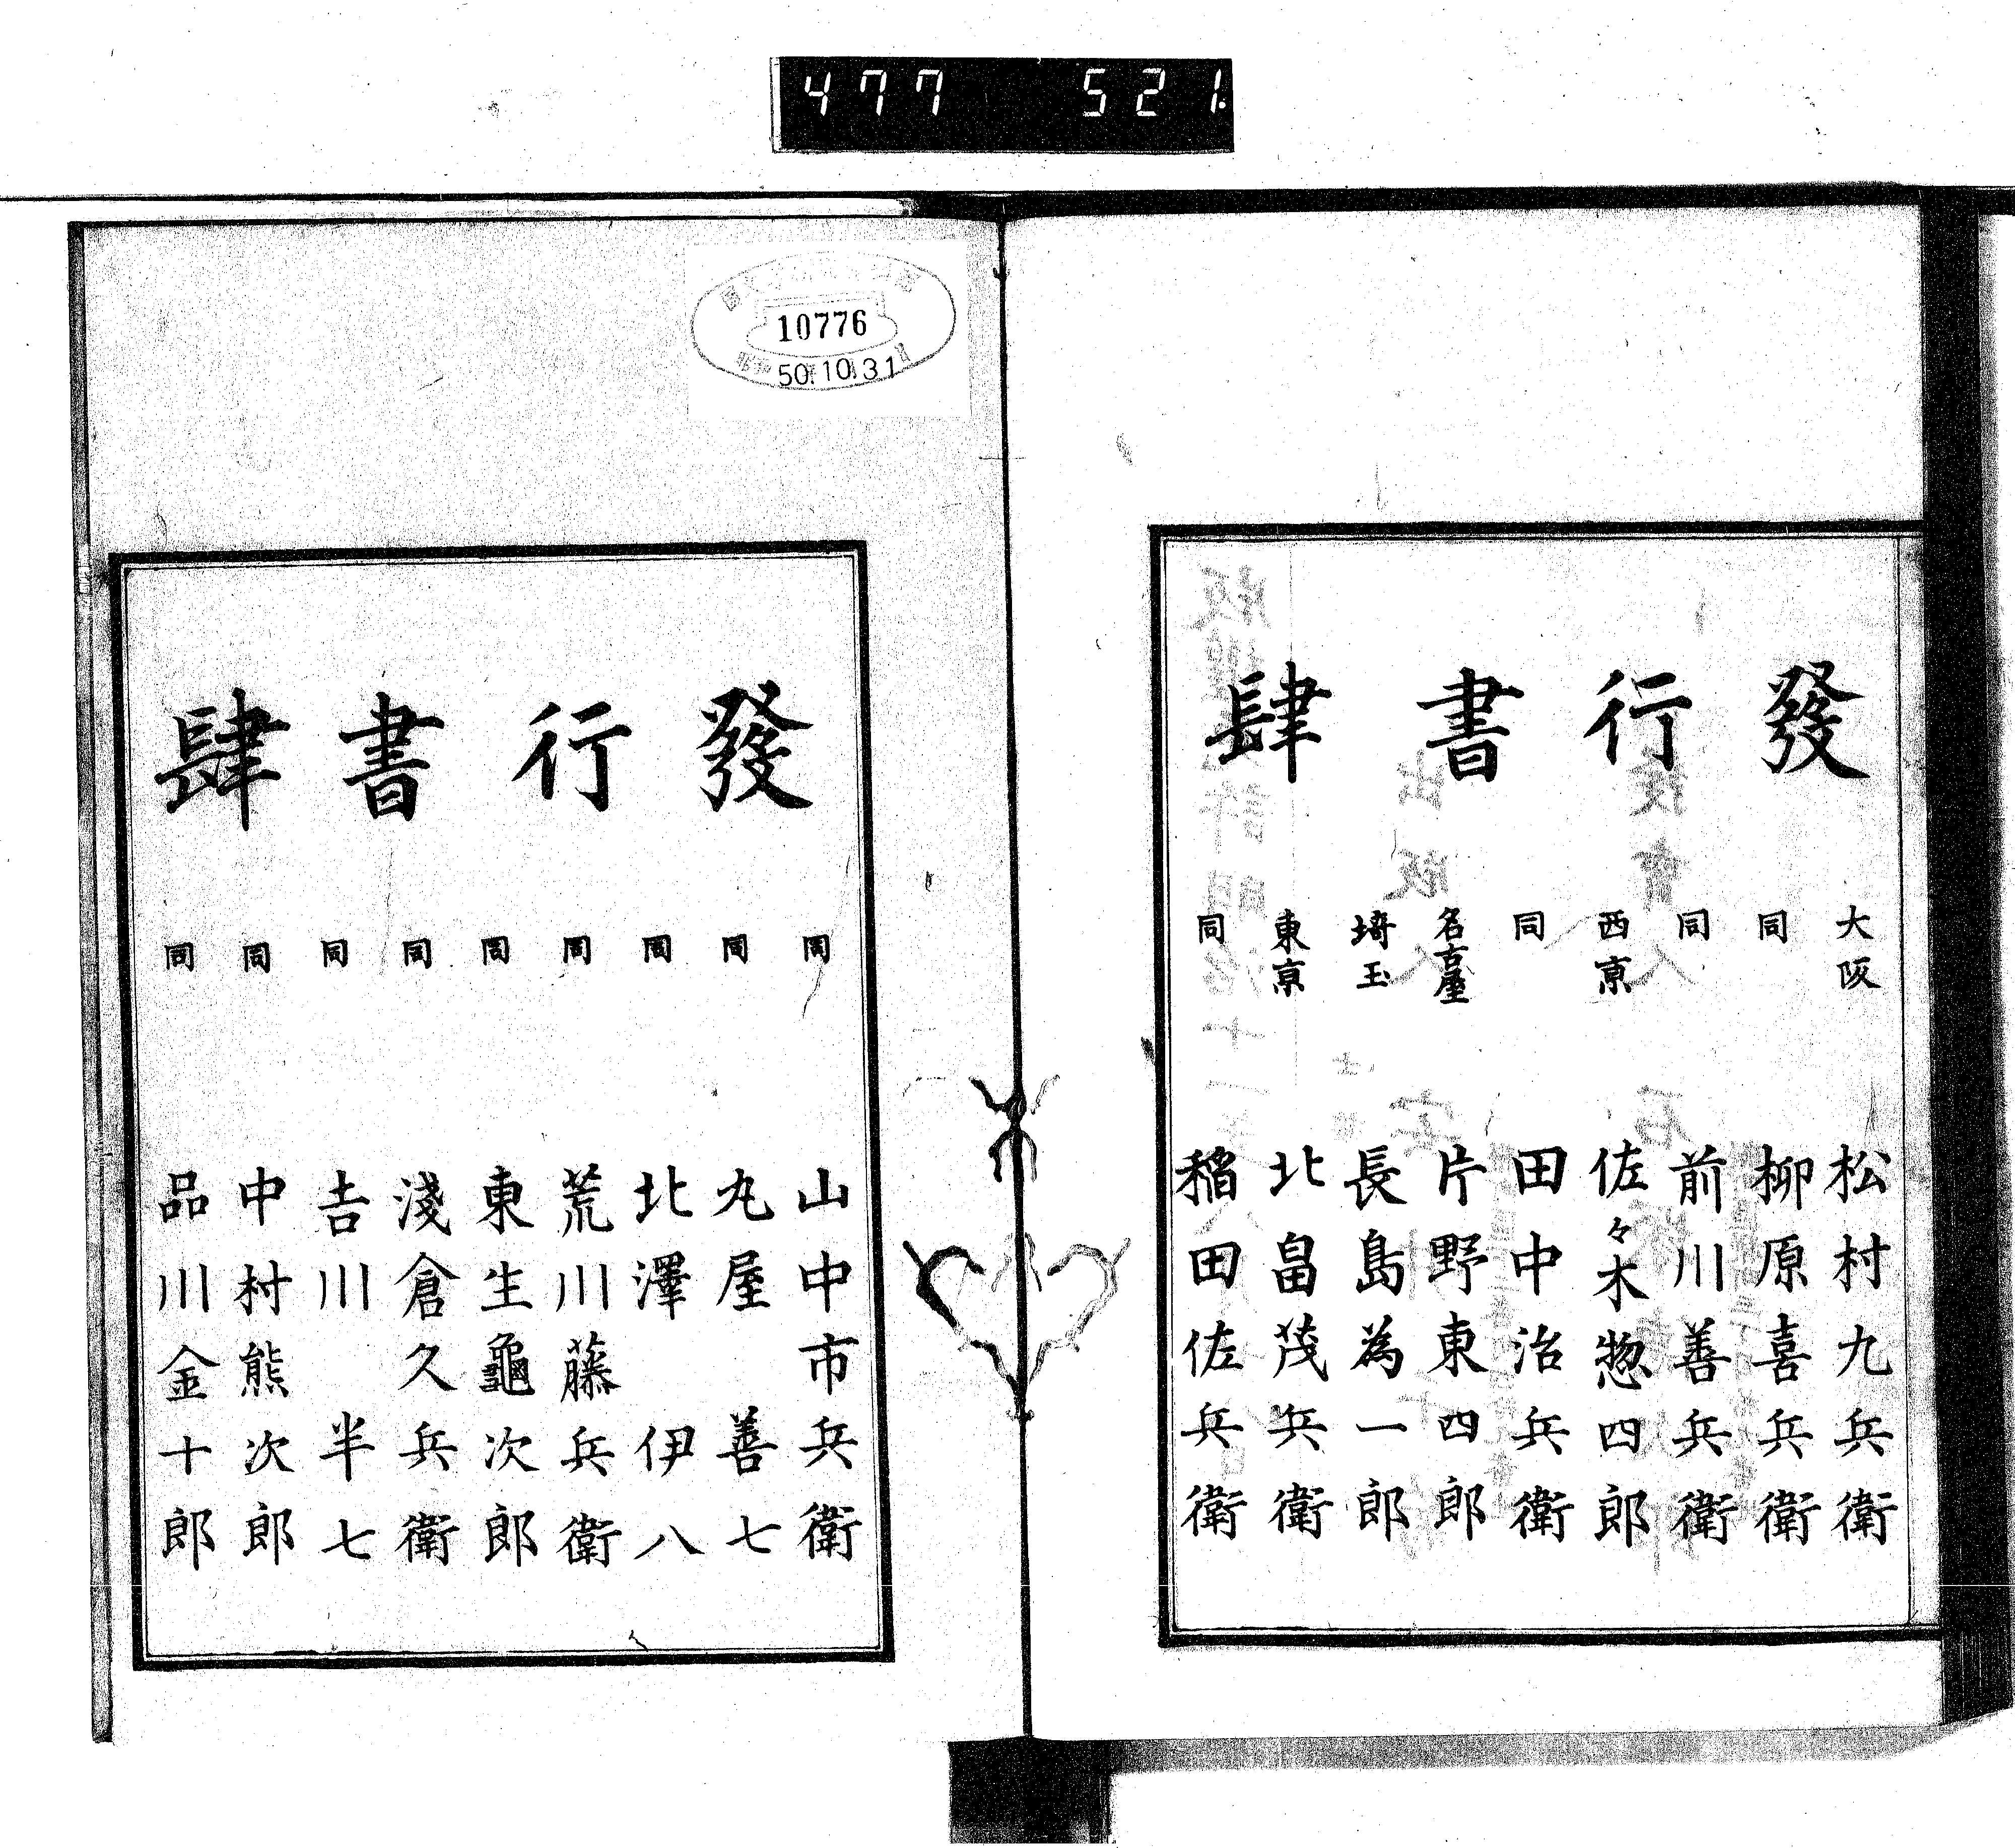 477 521
發行書肆
大阪 松村九兵衛
同 柳原喜兵衛
同 前川善兵衛
西亰 佐々木惣四郎
同 田中治兵衛
名古屋 片野東四郎
埼玉 長島為一郎
東亰 北畠茂兵衛
同 稲田佐兵衛
10776
50.10.31
發行書肆
同 山中市兵衛
同 丸屋善七
同 北澤伊八
同 荒川藤兵衛
同 東生龜次郎
同 淺倉久兵衛
同 吉川半七
同 中村熊次郎
同 品川金十郎